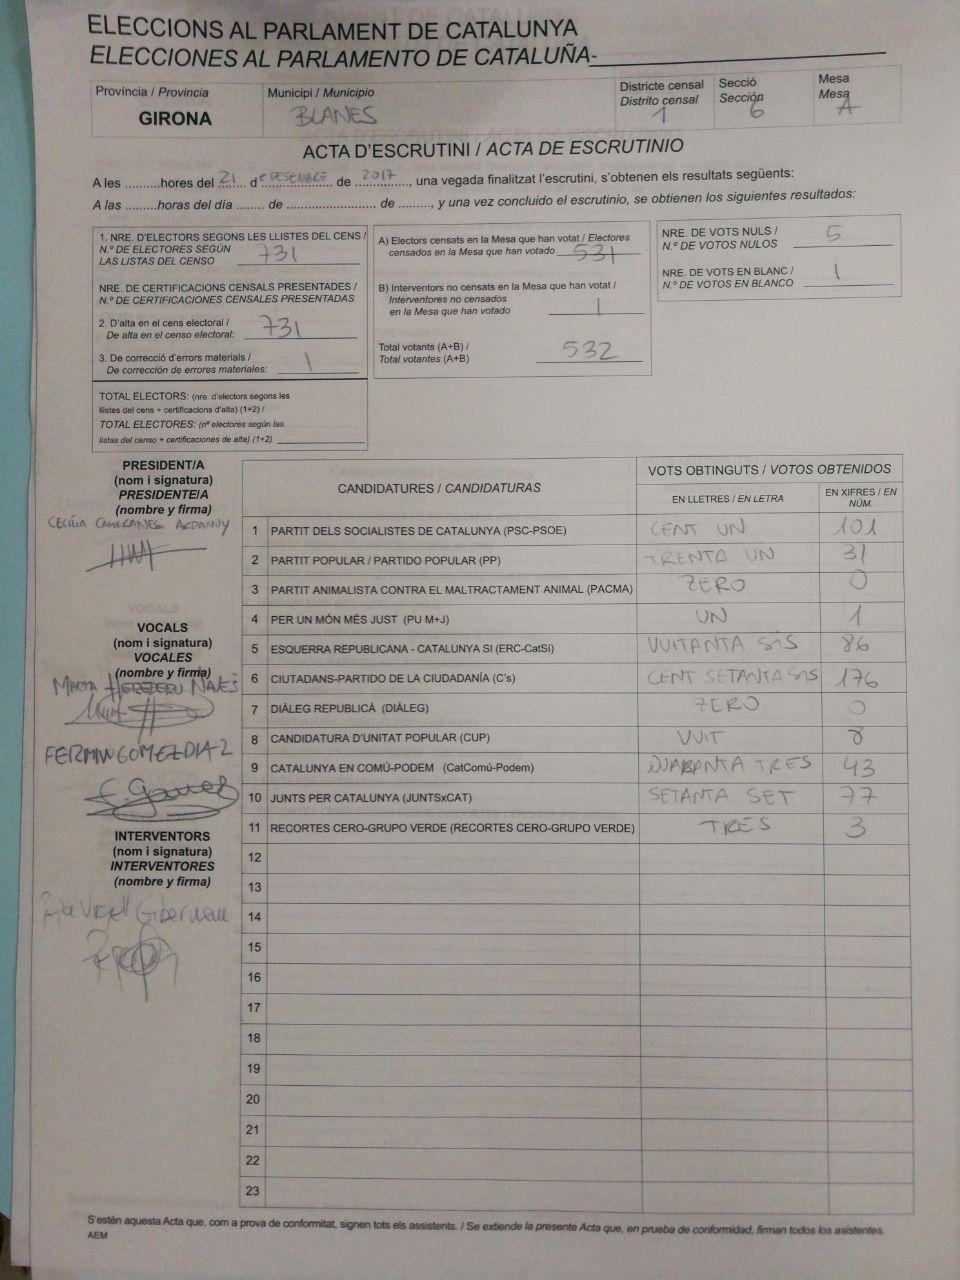 ELECCIONS AL PARLAMENT DE CATALUNYA
ELECCIONES AL PARLAMENTO DE CATALUÑA-
Província / Provincia
GIRONA
Municipi / Municipio
BLANES
Districte censal
Distrito censal
1
Secció
Sección
6
Mesa
Mesa
A
ACTA D'ESCRUTINI / ACTA DE ESCRUTINIO
A les ..........hores del 21 de DESEMBRE de 2017, una vegada finalitzat l'escrutini, s'obtenen els resultats següents:
A las .........horas del día ........ de ......................... de ........., y una vez concluido el escrutinio, se obtienen los siguientes resultados:
1. NRE. D'ELECTORS SEGONS LES LLISTES DEL CENS /
N.º DE ELECTORES SEGÚN
LAS LISTAS DEL CENSO 731
NRE. DE CERTIFICACIONS CENSALS PRESENTADES /
N.º DE CERTIFICACIONES CENSALES PRESENTADAS
2. D'alta en el cens electoral /
De alta en el censo electoral: 731
3. De correcció d'errors materials /
De corrección de errores materiales: 1
TOTAL ELECTORS: (nre. d'electors segons les
llistes del cens + certificacions d'alta) (1+2) /
TOTAL ELECTORES: (nº electores según las
listas del censo + certificaciones de alta) (1+2)
A) Electors censats en la Mesa que han votat / Electores
censados en la Mesa que han votado 531
B) Interventors no censats en la Mesa que han votat /
Interventores no censados
en la Mesa que han votado 1
Total votants (A+B) /
Total votantes (A+B) 532
NRE. DE VOTS NULS /
N.º DE VOTOS NULOS 5
NRE. DE VOTS EN BLANC /
N.º DE VOTOS EN BLANCO 1
PRESIDENT/A
(nom i signatura)
PRESIDENTE/A
(nombre y firma)
CECÍLIA
VOCALS
(nom i signatura)
VOCALES
(nombre y firma)
MARTA
FERMIN GOMEZ DIAZ
F. Gomez
INTERVENTORS
(nom i signatura)
INTERVENTORES
(nombre y firma)
CANDIDATURES / CANDIDATURAS
VOTS OBTINGUTS / VOTOS OBTENIDOS
EN LLETRES / EN LETRA
EN XIFRES / EN
NÚM.
1 PARTIT DELS SOCIALISTES DE CATALUNYA (PSC-PSOE) CENT UN 101
2 PARTIT POPULAR / PARTIDO POPULAR (PP) TRENTA UN 31
3 PARTIT ANIMALISTA CONTRA EL MALTRACTAMENT ANIMAL (PACMA) ZERO 0
4 PER UN MÓN MÉS JUST (PU M+J) UN 1
5 ESQUERRA REPUBLICANA - CATALUNYA SI (ERC-CatSí) VUITANTA SIS 86
6 CIUTADANS-PARTIDO DE LA CIUDADANÍA (C's) CENT SETANTA SIS 176
7 DIÀLEG REPUBLICÀ (DIÀLEG) ZERO 0
8 CANDIDATURA D'UNITAT POPULAR (CUP) VUIT 8
9 CATALUNYA EN COMÚ-PODEM (CatComú-Podem) TRES 43
10 JUNTS PER CATALUNYA (JUNTSxCAT) SETANTA SET 77
11 RECORTES CERO-GRUPO VERDE (RECORTES CERO-GRUPO VERDE) TRES 3
12
13
14
15
16
17
18
19
20
21
22
23
S'estén aquesta Acta que, com a prova de conformitat, signen tots els assistents. / Se extiende la presente Acta que, en prueba de conformidad, firman todos los asistentes.
AEM